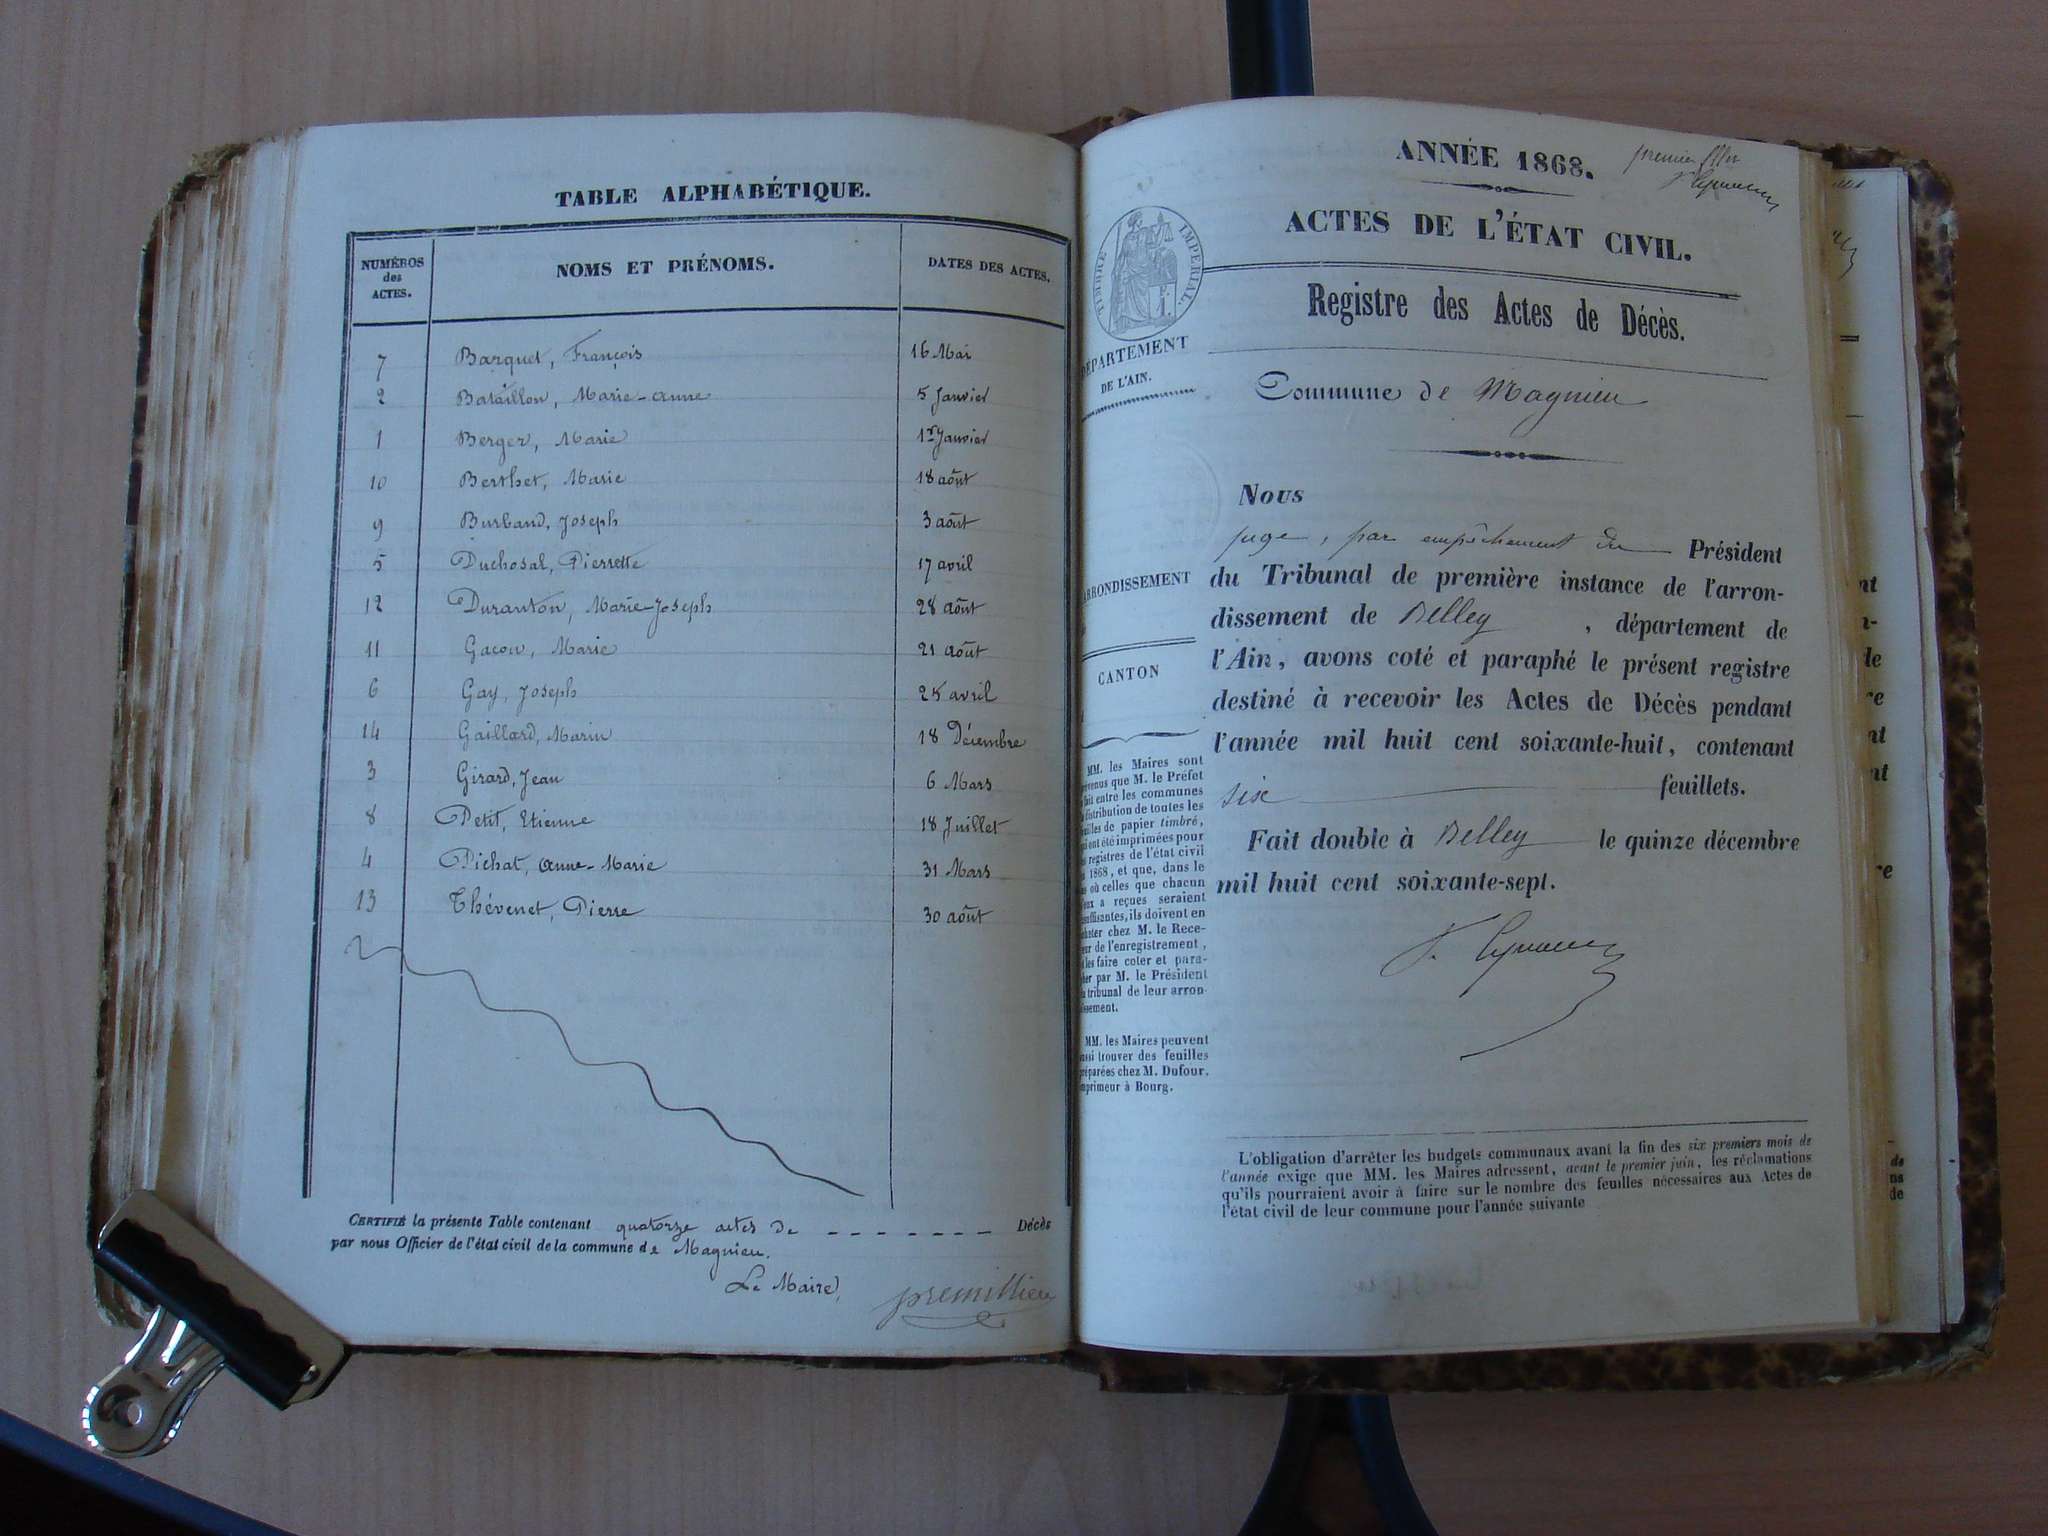 TABLE ALPHABÉTIQUE.
NUMÉROS des ACTES. NOMS ET PRÉNOMS. DATES DES ACTES.
7 Barquet, François 16 Mai
2 Bataillon, Marie-Anne 5 Janvier
1 Berger, Marie 1er Janvier
10 Berthet, Marie 18 août
9 Burland, Joseph 3 août
5 Duchosal, Pierrette 17 avril
12 Duranton, Marie-Joseph 28 août
11 Gacon, Marie 21 août
6 Gay, Joseph 25 avril
14 Gaillard, Marin 18 Décembre
3 Girard, Jean 6 Mars
8 Petit, Etienne 18 Juillet
4 Pichat, Anne-Marie 31 Mars
13 Thévenet, Pierre 30 août
CERTIFIÉ la présente Table contenant quatorze actes de Décès
par nous Officier de l'état civil de la commune de Magnieu.
Le Maire,
premillieu
ANNÉE 1868.
premier
ACTES DE L'ÉTAT CIVIL.
TIMBRE IMPÉRIAL.
Registre des Actes de Décès.
DÉPARTEMENT
DE L'AIN.
Commune de Magnieu
Nous
juge, par empêchement du Président
du Tribunal de première instance de l'arron-
dissement de Belley, département de
l'Ain, avons coté et paraphé le présent registre
destiné à recevoir les Actes de Décès pendant
l'année mil huit cent soixante-huit, contenant
six feuillets.
Fait double à Belley le quinze décembre
mil huit cent soixante-sept.
ARRONDISSEMENT
CANTON
MM. les Maires sont
prévenus que M. le Préfet
fait entre les communes
distribution de toutes les
feuilles de papier timbré,
qui ont été imprimées pour
registres de l'état civil
1868, et que, dans le
où celles que chacun
d'eux a reçues seraient
insuffisantes, ils doivent en
acheter chez M. le Rece-
veur de l'enregistrement,
les faire coter et para-
pher par M. le Président
du tribunal de leur arron-
dissement.
MM. les Maires peuvent
aussi trouver des feuilles
préparées chez M. Dufour,
imprimeur à Bourg.
L'obligation d'arrêter les budgets communaux avant la fin des six premiers mois de
l'année exige que MM. les Maires adressent, avant le premier juin, les réclamations
qu'ils pourraient avoir à faire sur le nombre des feuilles nécessaires aux Actes de
l'état civil de leur commune pour l'année suivante